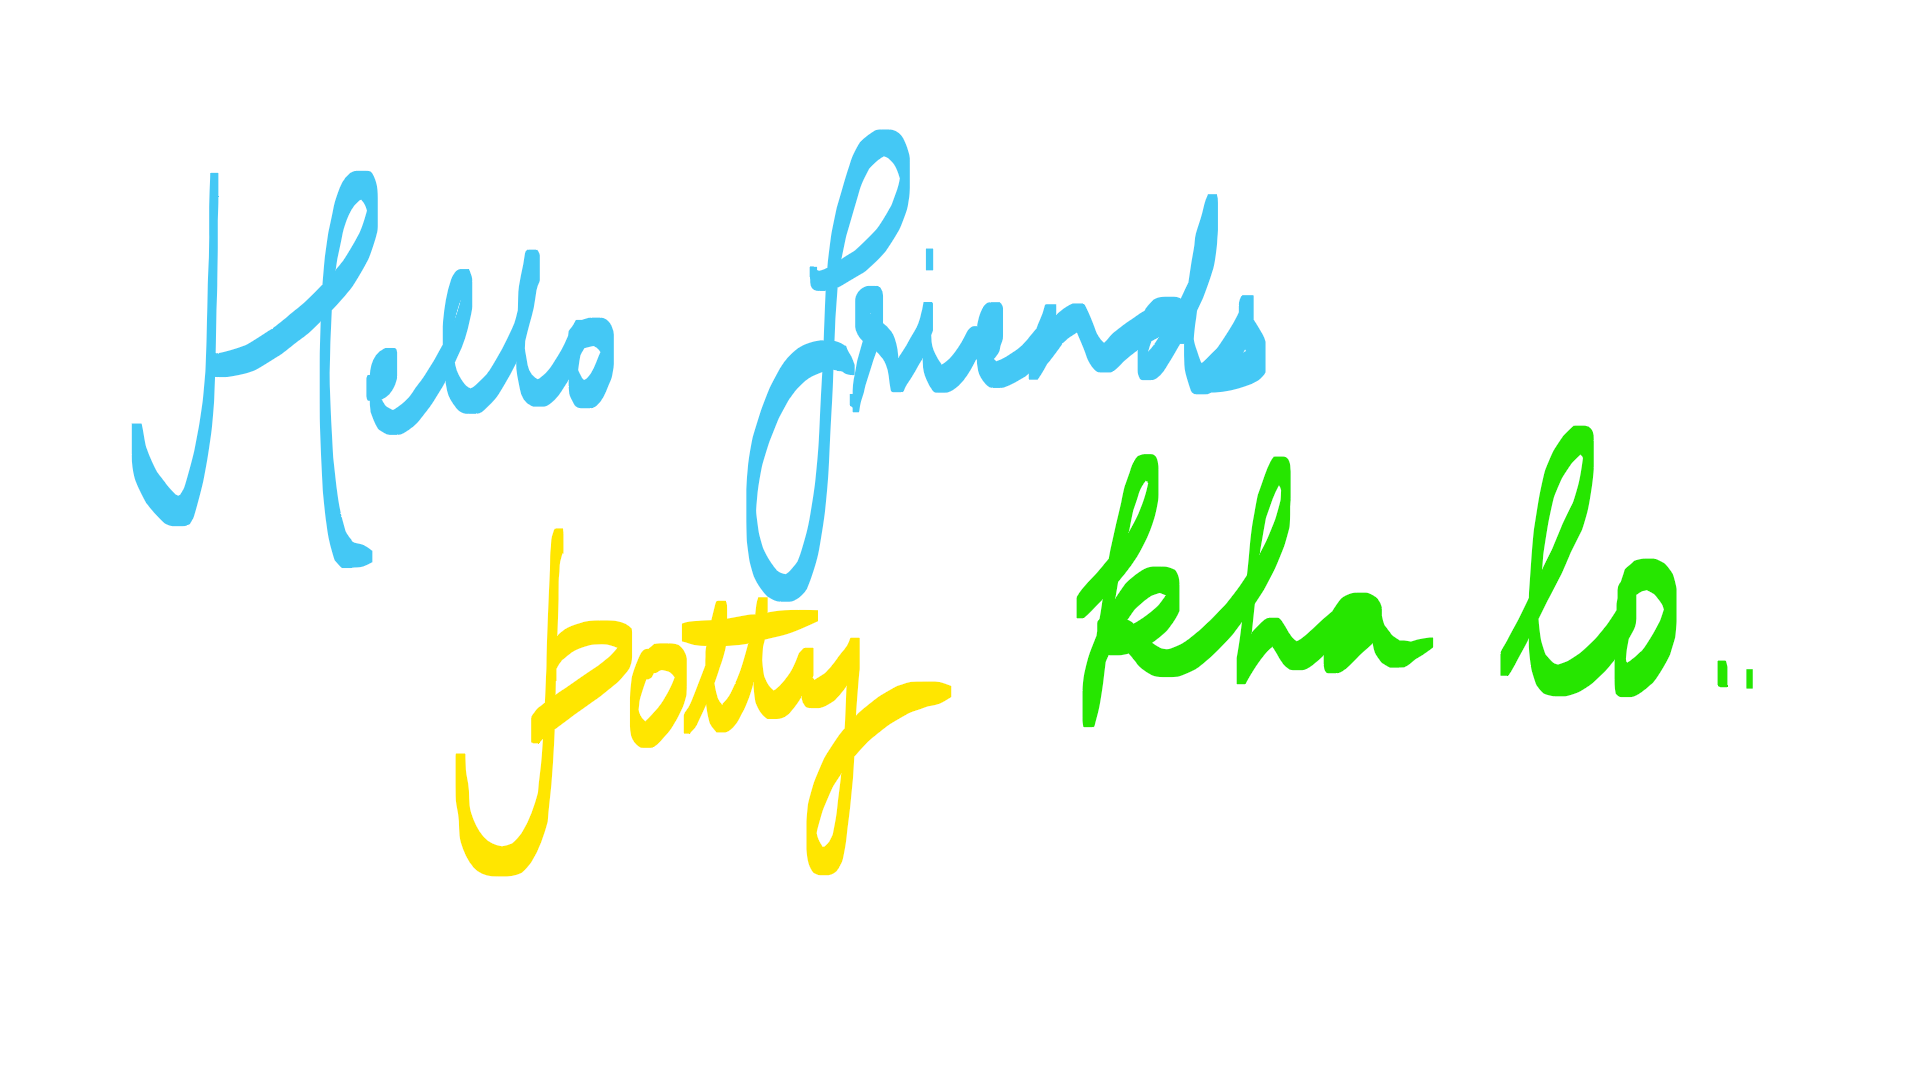 Hello friends
potty kha lo..